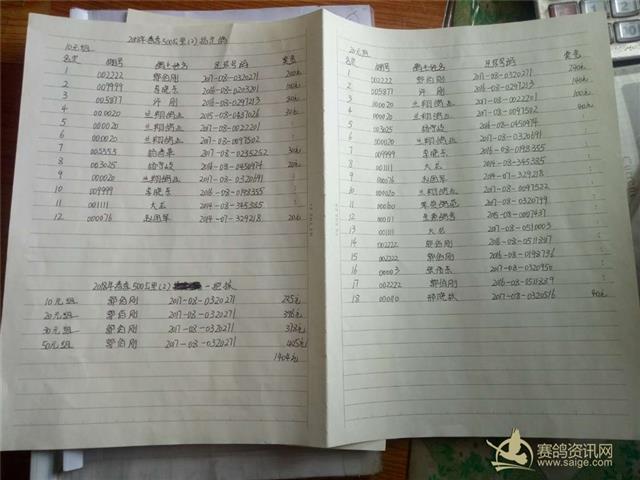 2018年春季500公里(2)指定鸽
10元组
名次 棚号 鸽主姓名 足环号码 奖金
1 002222 郭伯刚 2017-08-0320271
2 009999 2016-08-0203201
3 005877 许刚 2016-08-0297213
4 000020 兰翔鸽业 2015-08-0487026
5 000020 兰翔鸽业 2017-08-0022201
6 000020 兰翔鸽业 2017-08-0097502
7 2017-08-0235252 30元
8 003025 2016-08-0450974 20元
9 000020 兰翔鸽业 2017-08-0320691
10 009999 2016-08-0198355
11 001111 大志 2014-08-345385
12 000076 赵国军 2014-07-329218 20元
2018年春季500公里(2) 一把抓
10元组 郭伯刚 2017-08-0320271
20元组 郭伯刚 2017-08-0320271
30元组 郭伯刚 2017-08-0320271
50元组 郭伯刚 2017-08-0320271 405元
1404元
20元组
名次 棚号 鸽主姓名 足环号码 奖金
1 002222 郭伯刚 2017-08-0320271
2 005877 许刚 2016-08-0297213
3 000020 兰翔鸽业 2017-08-0022201 100元
4 000020 兰翔鸽业 2017-08-0097502 40元
5 003025 2016-08-0450974
6 000020 兰翔鸽业 2017-08-0320691
7 009999 2016-08-0198355
8 001111 大志 2014-08-345385
9 赵国军 2014-07-329218
10 000020 兰翔鸽业 2017-08-0097522
11 2017-08-0320799
12 2015-08-0007437
13 001111 大志 2017-08-0510003
14 002222 郭伯刚 2016-08-0511887
15 002222 郭伯刚 2016-08-0198736
16 00003 2017-08-0320950
17 002222 郭伯刚 2016-08-0511889
18 2017-08-0320516 40元
赛鸽资讯网
www.saige.com